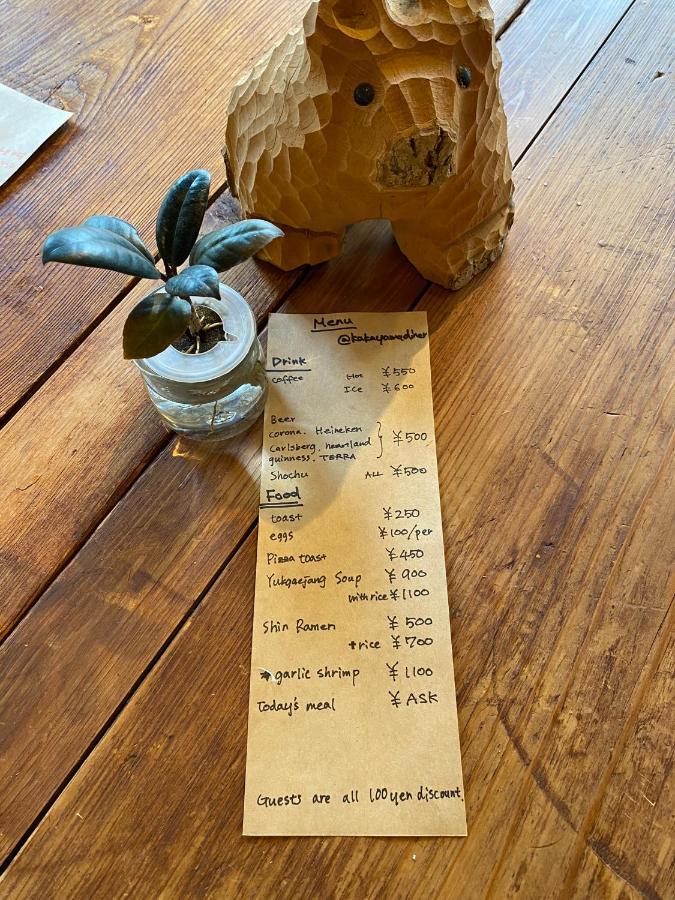 Menu
@kakayamadiner
Drink
coffee Hot ¥550
ICe ¥600
Beer
corona. Heineken
Carlsberg. heartland ¥500
guinness. TERRA
Shochu ALL ¥500
Food
toast ¥250
eggs ¥100/per
Pizza toast ¥450
Yukgaejang Soup ¥900
with rice ¥1100
Shin Ramen ¥500
+rice ¥700
garlic shrimp ¥1100
Today's meal ¥ASK
Guests are all 100 yen discount.